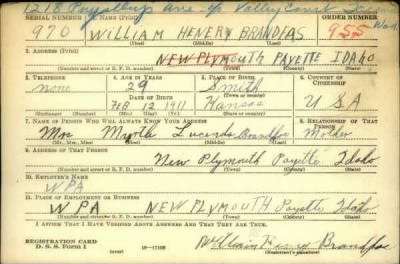 1218 Puyallup Ave. - % Valley Const
SERIAL NUMBER 1. NAME (Print) ORDER NUMBER
970 WILLIAM HENERY BRANDFAS 955
(First) (Middle) (Last)
2. ADDRESS (Print)
NEW PLYMOUTH PAYETTE IDAHO
(Number and street or R. F. D. number) (Town) (County) (State)
3. TELEPHONE 4. AGE IN YEARS 5. PLACE OF BIRTH 6. COUNTRY OF CITIZENSHIP
none 29 Smith
DATE OF BIRTH (Town or county)
Feb 12 1911 Kansas U S A
(Mo.) (Day) (Yr.) (State or country)
7. NAME OF PERSON WHO WILL ALWAYS KNOW YOUR ADDRESS 8. RELATIONSHIP OF THAT PERSON
Mrs Myrtle Lucinda Brandfas Mother
(Mr., Mrs., Miss) (First) (Middle) (Last)
9. ADDRESS OF THAT PERSON
New Plymouth Payette Idaho
(Number and street or R. F. D. number) (Town) (County) (State)
10. EMPLOYER'S NAME
WPA
11. PLACE OF EMPLOYMENT OR BUSINESS
WPA NEW PLYMOUTH Payette Idah
(Number and street or R. F. D. number) (Town) (County) (State)
I AFFIRM THAT I HAVE VERIFIED ABOVE ANSWERS AND THAT THEY ARE TRUE.
REGISTRATION CARD
D. S. S. Form 1 (over) 16-17105 William Henery Brandfas